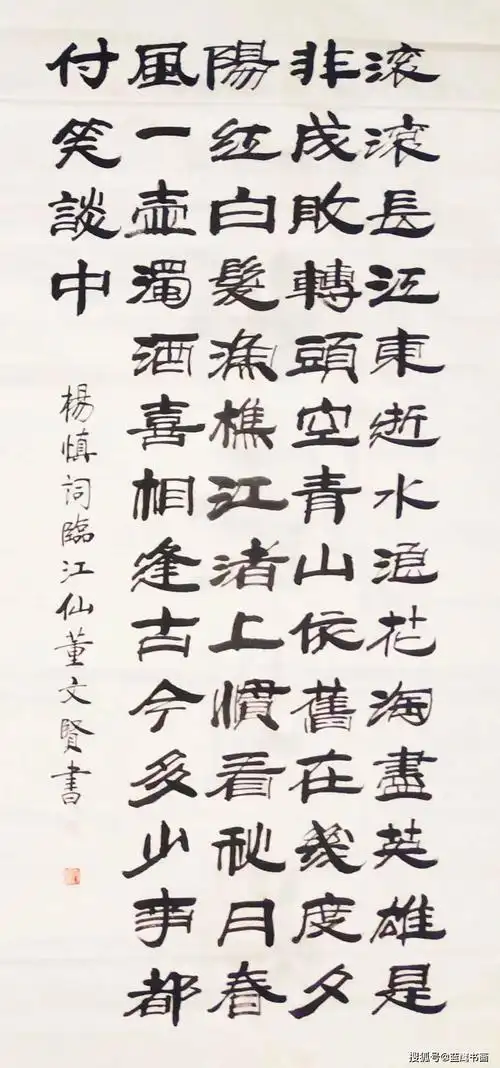 滚滚長江東逝水浪花淘盡英雄是
非成敗轉頭空青山依舊在幾度夕
陽紅白髮漁樵江渚上慣看秋月春
風一壺濁酒喜相逢古今多少事都
付笑談中
楊慎詞臨江仙董文賢書
搜狐号@蓝彧书画